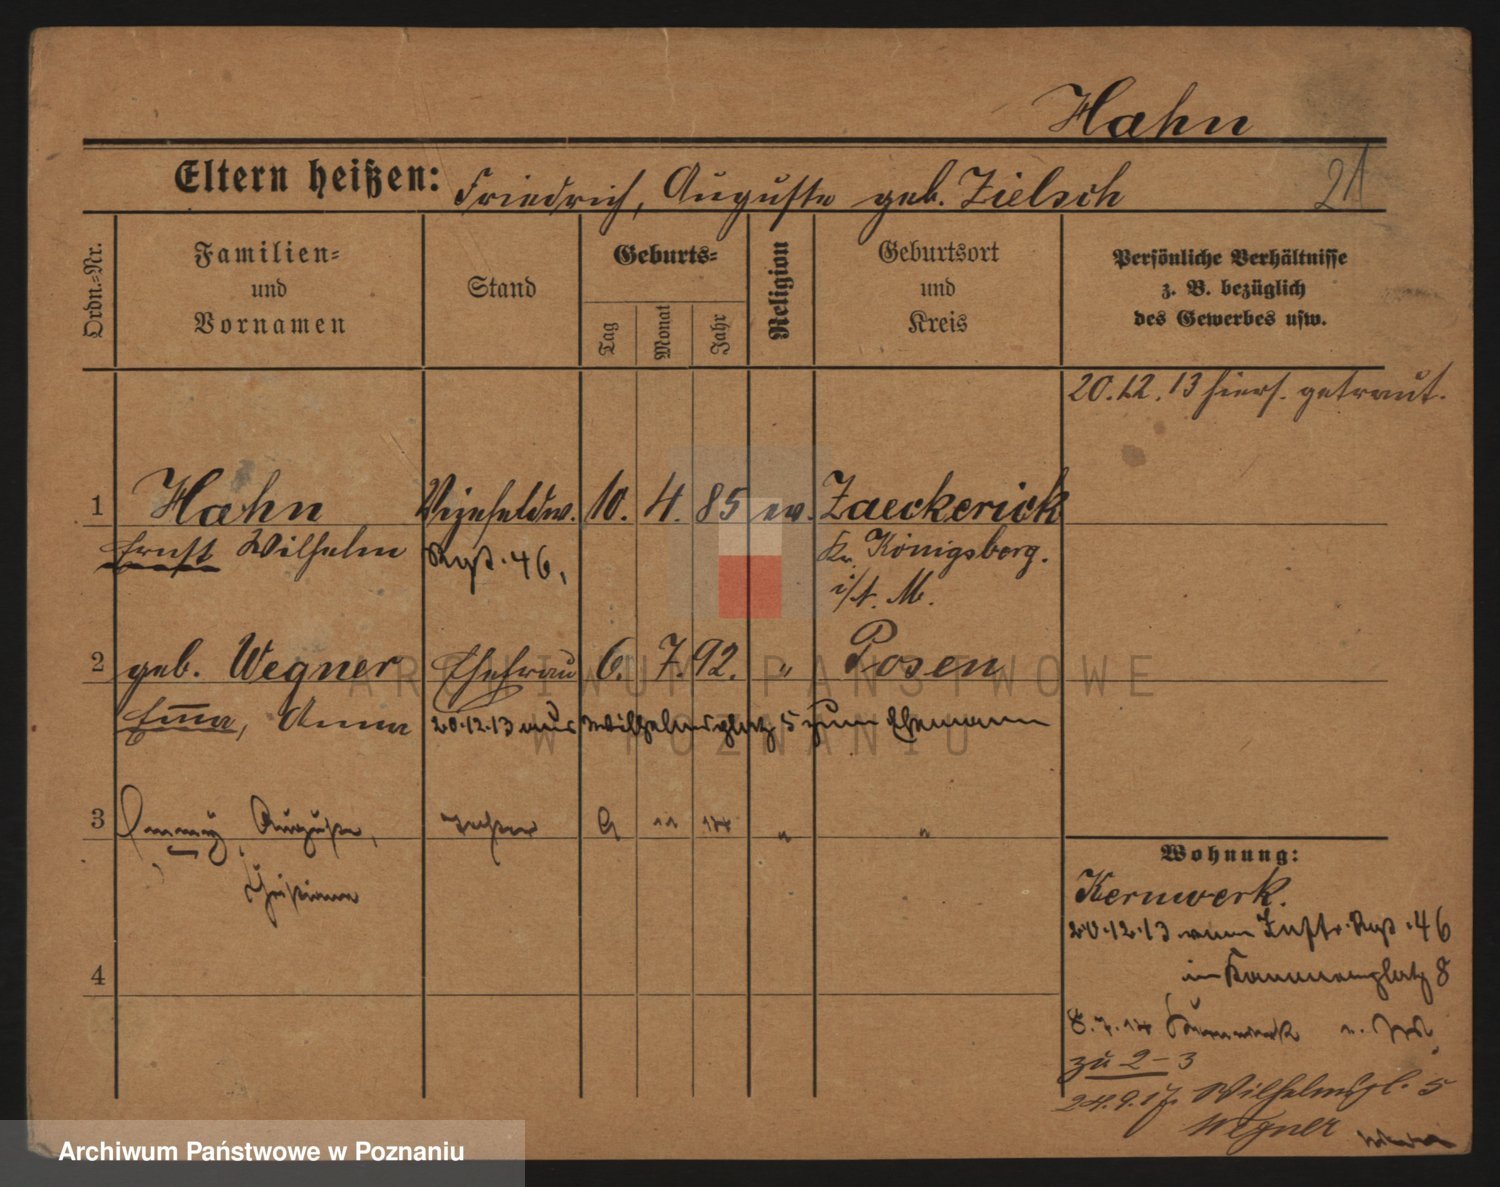 Hahn
Eltern heißen: Friedrich, Auguste geb. Zielsch
21
Ordn.-Nr.
Familien-
und
Vornamen
Stand
Geburts-
Tag
Monat
Jahr
Religion
Geburtsort
und
Kreis
Persönliche Verhältnisse
z. B. bezüglich
des Gewerbes usw.
20.12.13 hiers. getraut.
1 Hahn Vizefeldw. 10. 4. 85 ev. Zaeckerick
Ernst Wilhelm Rgt. 46, Kr. Königsberg.
i/N. M.
2 geb. Wegner Ehefrau 6. 7. 92. " Posen
Emma, Anna 20.12.13 aus Wilhelmsplatz 5 zum Ehemann
3 Auguste, Tochter 9 11 14 " "
4
Wohnung:
Kernwerk.
20.12.13 Inftr. Rgt. 46
8
8.7.14 Kernwerk
zu 2-3
24.9.17. Wilhelmspl. 5
Wegner
ARCHIWUM PAŃSTWOWE
W POZNANIU
Archiwum Państwowe w Poznaniu